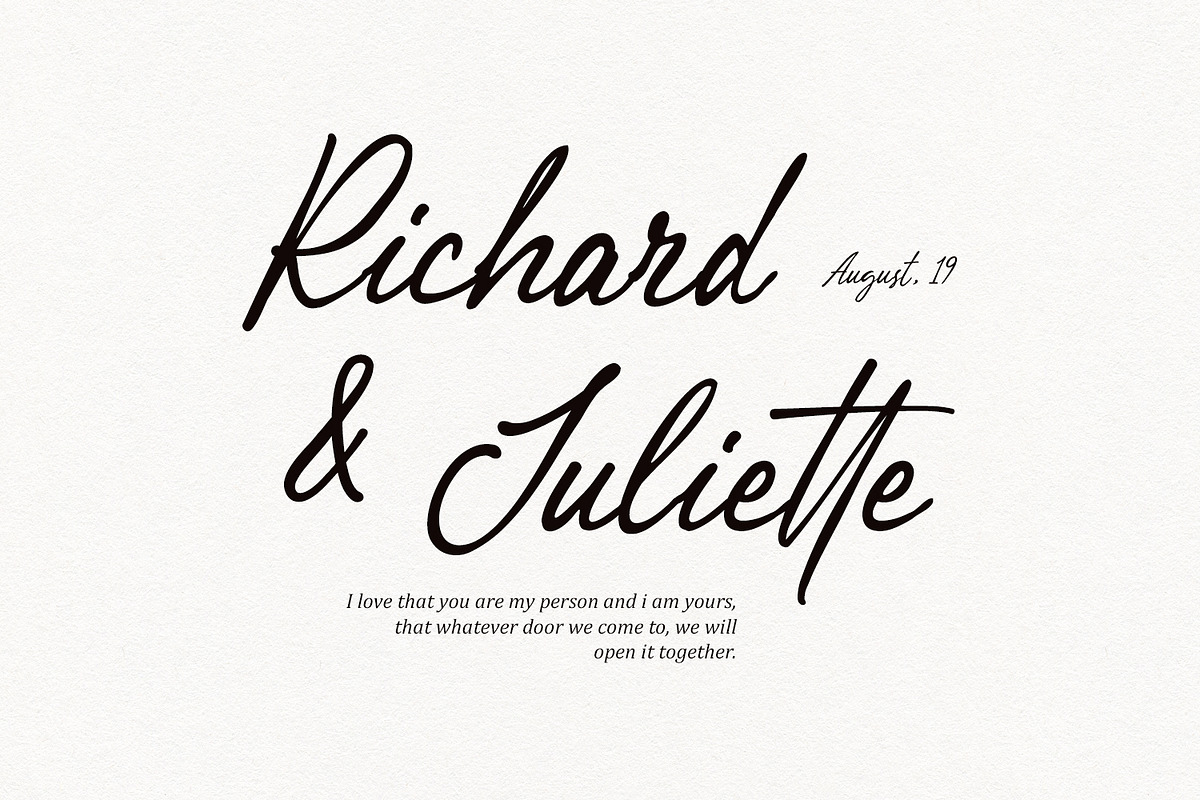 Richard
August, 19
& Juliette
I love that you are my person and i am yours,
that whatever door we come to, we will
open it together.